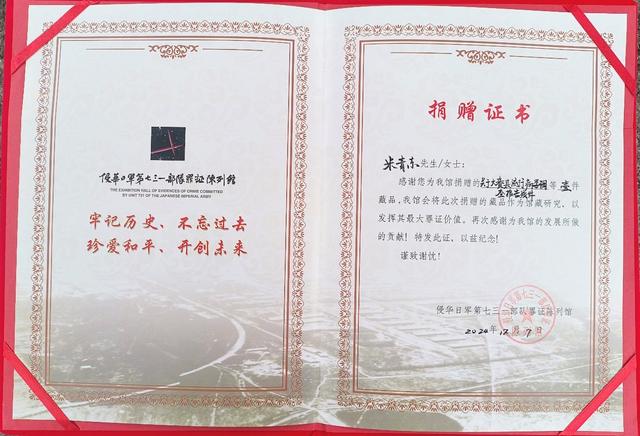 侵华日军第七三一部队罪证陈列馆
THE EXHIBITION HALL OF EVIDENCES OF CRIME COMMITTED
BY UNIT 731 OF THE JAPANESE IMPERIAL ARMY
牢记历史、不忘过去
珍爱和平、开创未来
捐赠证书
先生/女士：
感谢您为我馆捐赠的 等壹件
藏品，我馆会将此次捐赠的藏品作为馆藏研究，以
发挥其最大罪证价值。再次感谢为我馆的发展所做
的贡献！特发此证，以兹纪念！
谨致谢忱！
侵华日军第七三一部队罪证陈列馆
2024年12月7日